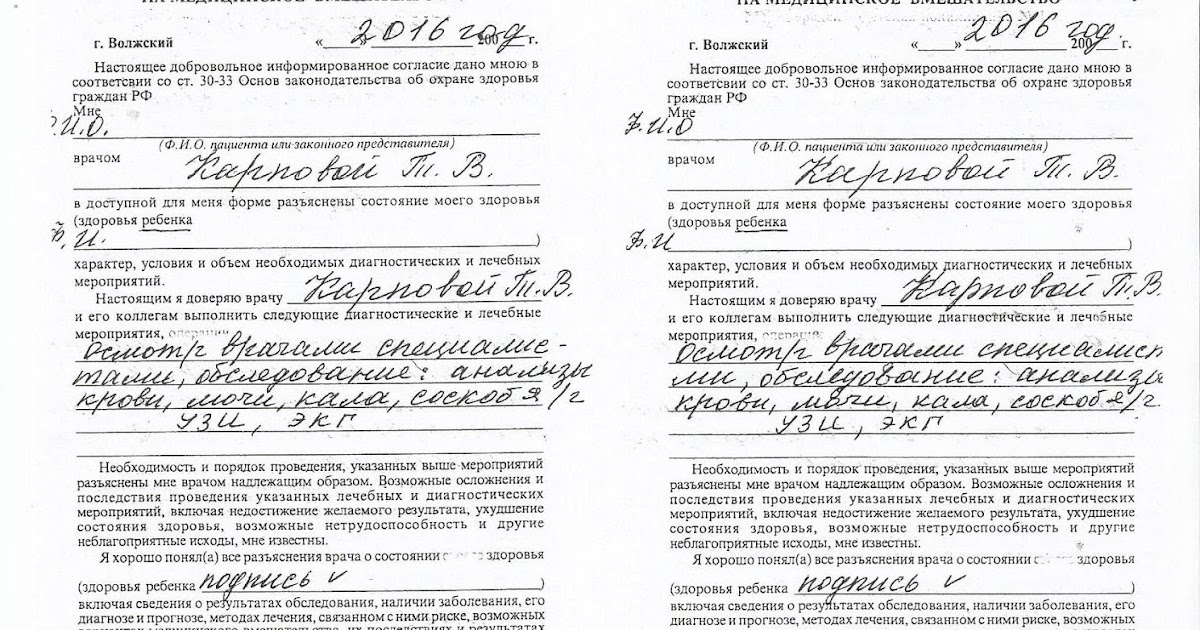 НА МЕДИЦИНСКОЕ ВМЕШАТЕЛЬСТВО
г. Волжский « » 2016 год 200 г.
Настоящее добровольное информированное согласие дано мною в
соответсвии со ст. 30-33 Основ законодательства об охране здоровья
граждан РФ
Мне
Ф.И.О.
(Ф.И.О. пациента или законного представителя)
врачом Карповой Т. В.
в доступной для меня форме разъяснены состояние моего здоровья
(здоровья ребенка
Ф. И. )
характер, условия и объем необходимых диагностических и лечебных
мероприятий.
Настоящим я доверяю врачу Карповой Т.В.
и его коллегам выполнить следующие диагностические и лечебные
мероприятия, операции
Осмотр врачами специалис-
тами, обследование: анализы
крови, мочи, кала, соскоб я/г
УЗИ, ЭКГ
Необходимость и порядок проведения, указанных выше мероприятий
разъяснены мне врачом надлежащим образом. Возможные осложнения и
последствия проведения указанных лечебных и диагностических
мероприятий, включая недостижение желаемого результата, ухудшение
состояния здоровья, возможные нетрудоспособность и другие
неблагоприятные исходы, мне известны.
Я хорошо понял(а) все разъяснения врача о состоянии здоровья
(здоровья ребенка подпись v )
включая сведения о результатах обследования, наличии заболевания, его
диагнозе и прогнозе, методах лечения, связанном с ними риске, возможных
вариантах медицинского вмешательства, их последствиях и результатах
НА МЕДИЦИНСКОЕ ВМЕШАТЕЛЬСТВО
г. Волжский « » 2016 год 200 г.
Настоящее добровольное информированное согласие дано мною в
соответсвии со ст. 30-33 Основ законодательства об охране здоровья
граждан РФ
Мне
Ф.И.О
(Ф.И.О. пациента или законного представителя)
врачом Карповой Т. В.
в доступной для меня форме разъяснены состояние моего здоровья
(здоровья ребенка
Ф.И )
характер, условия и объем необходимых диагностических и лечебных
мероприятий.
Настоящим я доверяю врачу Карповой Т.В.
и его коллегам выполнить следующие диагностические и лечебные
мероприятия, операции
Осмотр врачами специалист
ми, обследование: анализы
крови, мочи, кала, соскоб я/г
УЗИ, ЭКГ
Необходимость и порядок проведения, указанных выше мероприятий
разъяснены мне врачом надлежащим образом. Возможные осложнения и
последствия проведения указанных лечебных и диагностических
мероприятий, включая недостижение желаемого результата, ухудшение
состояния здоровья, возможные нетрудоспособность и другие
неблагоприятные исходы, мне известны.
Я хорошо понял(а) все разъяснения врача о состоянии здоровья
(здоровья ребенка подпись v )
включая сведения о результатах обследования, наличии заболевания, его
диагнозе и прогнозе, методах лечения, связанном с ними риске, возможных